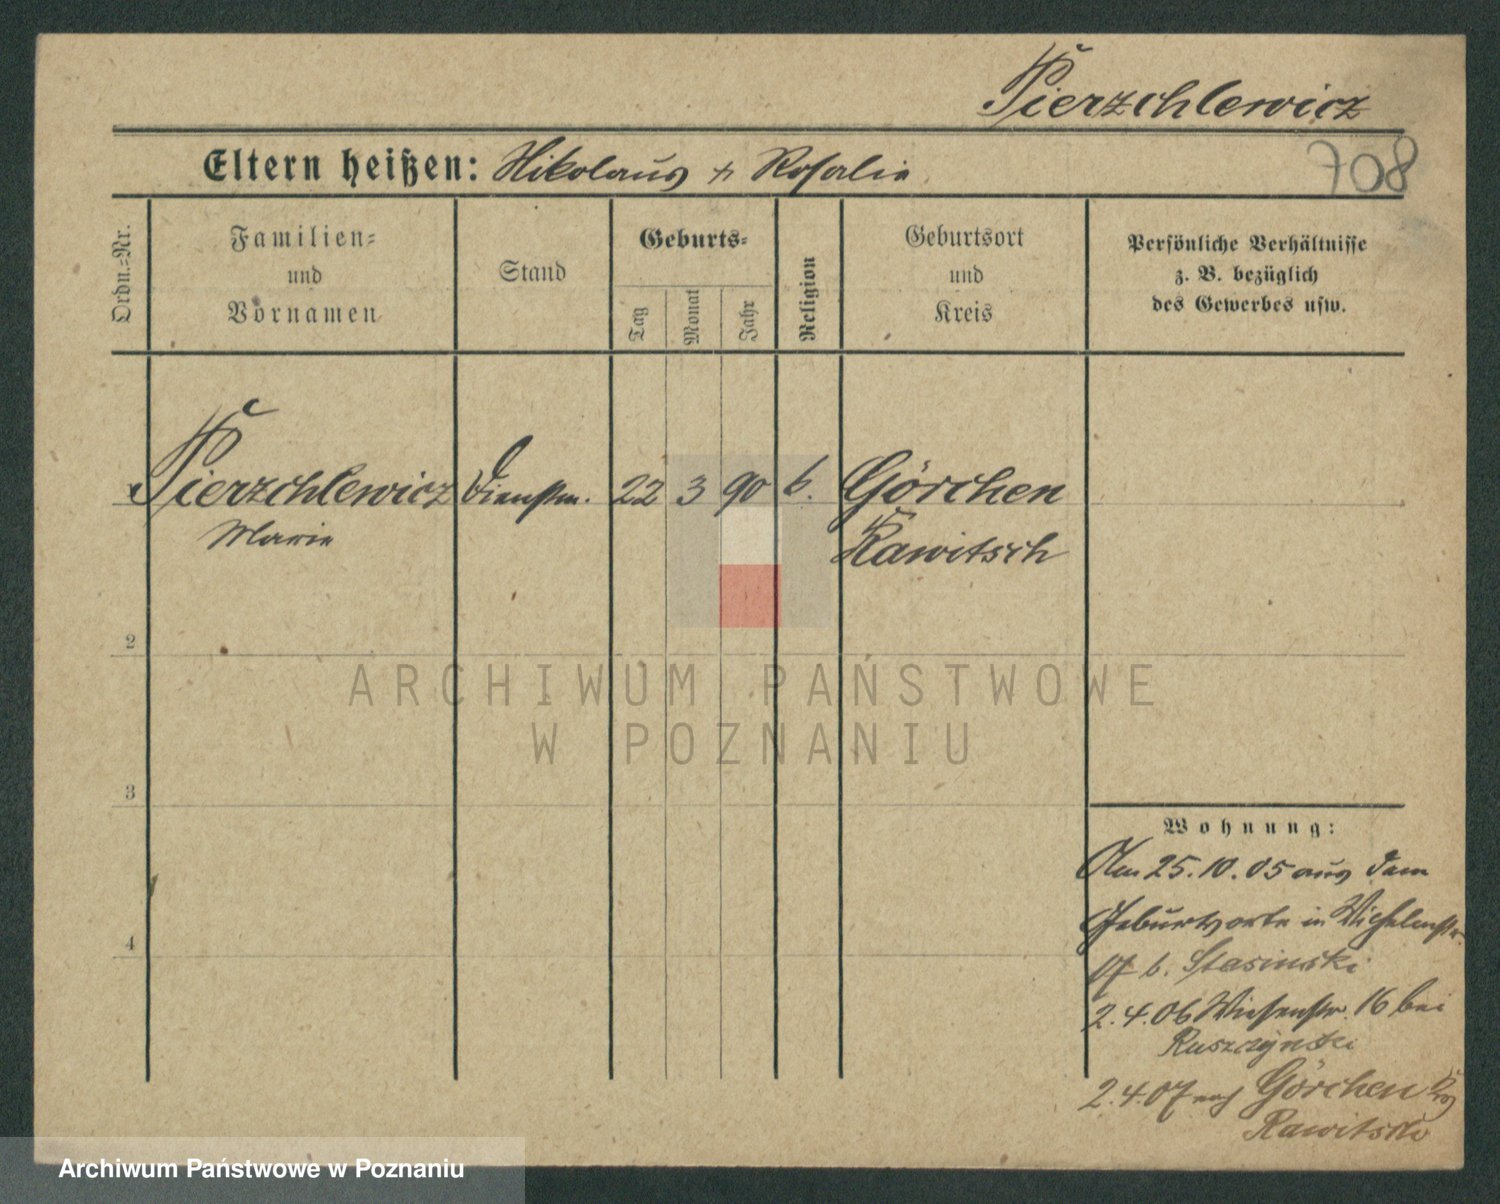 Pierzchlewicz
Eltern heißen: Nikolaus & Rosalie
708
Ordn.-Nr.
Familien-
und
Vornamen
Stand
Geburts-
Tag
Monat
Jahr
Religion
Geburtsort
und
Kreis
Persönliche Verhältnisse
z. B. bezüglich
des Gewerbes usw.
1 Pierzchlewicz Dienstm. 22 3 90 k. Görchen
Marie Rawitsch
2
3
4
ARCHIWUM PAŃSTWOWE
W POZNANIU
Wohnung:
Am 25.10.05 aus dem
Geburtsorte in
07 b. Stasinski
2.4.06 Wiesenstr. 16 bei
Ruszczynski
2.4.07 nach Görchen Krs
Rawitsch
Archiwum Państwowe w Poznaniu